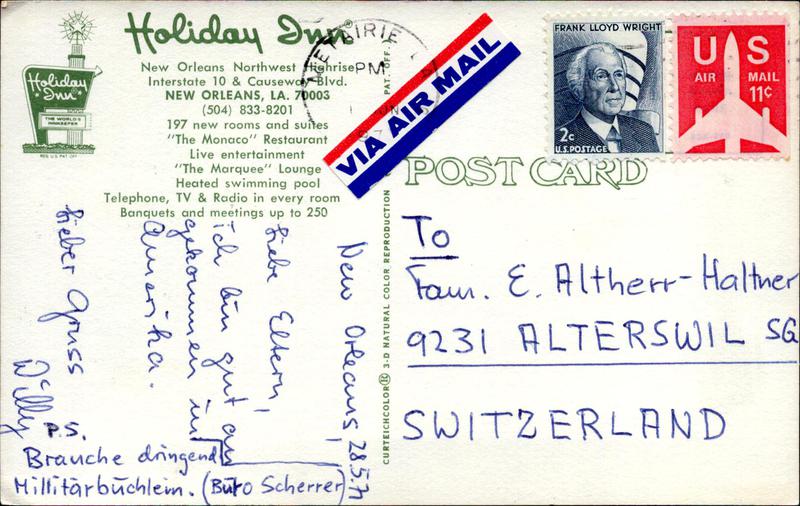 Holiday Inn®
New Orleans Northwest Highrise
Interstate 10 & Causeway Blvd.
NEW ORLEANS, LA. 70003
(504) 833-8201
197 new rooms and suites
"The Monaco" Restaurant
Live entertainment
"The Marquee" Lounge
Heated swimming pool
Telephone, TV & Radio in every room
Banquets and meetings up to 250
Holiday
Inn
THE WORLD'S
INNKEEPER
REG. U.S. PAT. OFF.
METAIRIE
PM
VIA AIR MAIL
FRANK LLOYD WRIGHT
2c
U.S. POSTAGE
US
AIR MAIL
11c
POST CARD
CURTEICHCOLOR® 3-D NATURAL COLOR REPRODUCTION
PAT. OFF.
New Orleans, 28.5.71
Liebe Eltern,
ich bin gut an
gekommen in
Amerika.
Lieber Gruss
Willy
P.S.
Brauche dringend
Millitärbüchlein. (Büro Scherrer)
To
Fam. E. Altherr-Haltner
9231 ALTERSWIL SG
SWITZERLAND